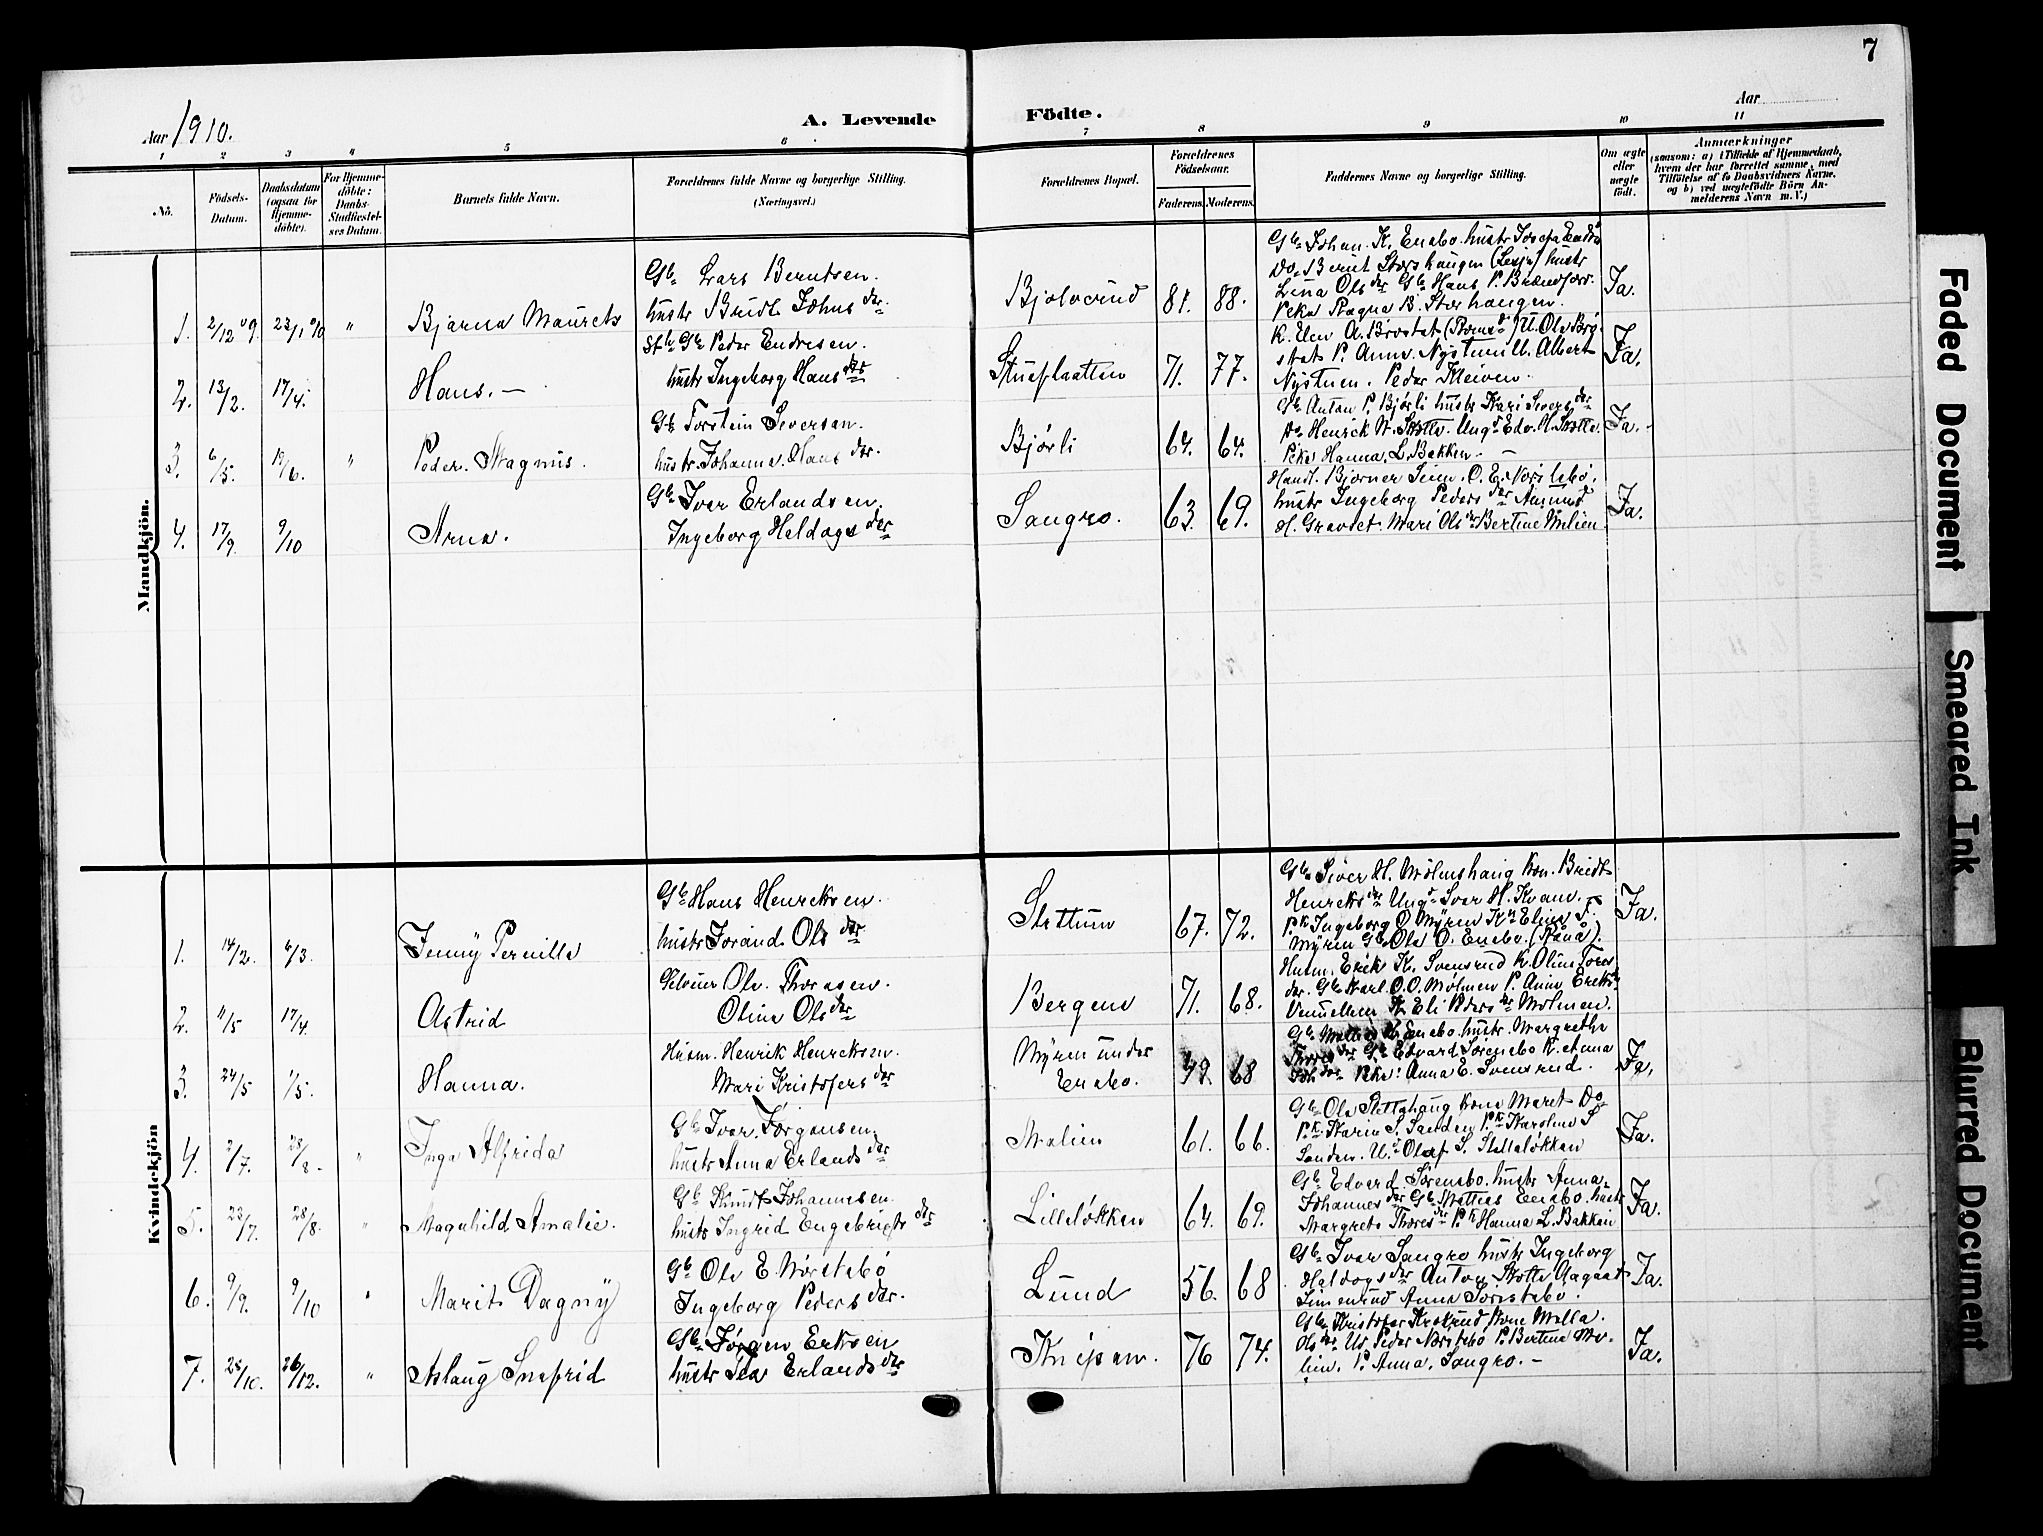 7
Aar 1910.
A. Levende Födte.
Aar
1 2 3 4 5 6 7 8 9 10 11
No.
Födsels-Datum.
Daabsdatum (ogsaa for Hjemme-døbte).
For Hjemme-döbte: Daabs-Stadfæstel-ses Datum.
Barnets fulde Navn.
Forældrenes fulde Navne og borgerlige Stilling. (Næringsvei.)
Forældrenes Bopæl.
Forældrenes Födselsaar.
Faderens. Moderens.
Faddernes Navne og borgerlige Stilling.
Om ægte eller uægte födt.
Anmærkninger
(saasom: a) i Tilfælde af Hjemmedaab, hvem der har forrettet samme, med Tilföielse af to Daabsvidners Navne, og b) ved uægtefödte Börn An-melderens Navn m. V.)
Mandkjön.
1. 2/12 09. 23/1 0/10 " Bjarne Maurets
Gb. Lars Berntsen.
hustr Bridt Johns der.
Bjolverud 81. 88.
Gb. Johan K. Enebo. hustr
Do. Berut Storshaugen (Lesje) hustr
Lina Ols der Gb. Hans P.
Peke Ragna B. Storhaugen.
Ja.
2. 13/2. 17/4. Hans. —
Gb. Peder Endresen.
hustr Ingeborg Hans der
Stueflaatten 71. 77.
K. Elen A. Brøstet U. Ole Brø-
stet P. Anne. Nystuen U. Albert
Nystuen. Peder Kleiven.
Ja.
3. 6/5. 19/6. " Peder. Magnus.
Gb Torstein Seversen.
hustr. Johanne. Hans der.
Bjørli 64. 64.
Gb. Anton P. Bjørli hustr Kari Severs der
Do Henrik Ung. Edv. H.
Peke Hanna. L. Bakken. —
Ja.
4. 17/9. 9/10 Arne.
Gb. Iver Erlandsen.
Ingeborg Heldogs der
Sangro. 63. 69.
Handl. Bjorner O. E. Norstebö.
hustr Ingeborg Peders der Amund
H. Mari Ols der Bertine Melien
Ja.
Kvindekjön
1. 14/2. 6/3. Jenny Pernille
Gb Hans Henreksen.
hustr Jorand. Ols der
Slettum 67. 72.
Gb. Siver H. Mølmshaug Kon. Bridt
Henreks der Ung. Ivar H. Kvam.
Pk Ingeborg O. Myren Kn Eline T.
Myren Gb. Ole O. Enebo.
Ja.
2. 11/5 17/4. Astrid
Ole. Thoresen.
Oline Ols der
Bergene 71. 68.
Husm. Erik K. Svensrud K. Oline Tores
der. Gb. Karl O. O. Mølmen P. Anne Eriks
K Eli Peders der Mølmen.
3. 24/5 1/5. Hanna.
Husm. Henrik Henreksen.
Mari Kristofers der
Myren under
Enebo. 49. 68
Gb. Mattias K. Enebo. hustr. Margrethe
Thores der Gb. Edvard Sørensbo K. Anna
Joh der Peke: Anna E. Svensrud.
Ja,
4. 2/7. 28/8 - " Inga Alfrida
Gb Iver. Jørgensen.
hustr Anna Erlands der
Melien 61. 66.
Gb. Ole Slettahaug Kone Maret Do
Pk. Karin S. Sanden Pk Karoline S
Sanden. U. Olaf S. Sletteløkken
Ja.
5. 23/7. 28/8. " Magnhild Amalie.
Gb Knudt Johannesen.
hustr Ingrid Engebrigts der
Lilleløkken 64. 69.
Gb. Edvard. Sörensbo. hustr Anna
Johannes der Gb. Mattias Enebo. hustr
Margrete Thores der Pk Hanna L. Bakken
Ja.
6. 9/9. 9/10 " Marit Dagny
Gb Ole E. Nørstebø
Ingeborg Peders der.
Lund 56. 68
Gb. Iver Sangro hustr Ingeborg
Haldogs der Anton Aagaat
Anne
Ja.
7. 28/10. 26/12. " Aslaug Snefrid
Gb. Jørgen Erksen
hustr Ida Erlands der
Knipen. 76 74.
Gb. Kristofer Kone Milla.
Ols der U. Peder Nørstebø P. Bertine Me-
lien. P. Anna. Sangro. —
Ja.
Faded Document
Smeared Ink
Blurred Document